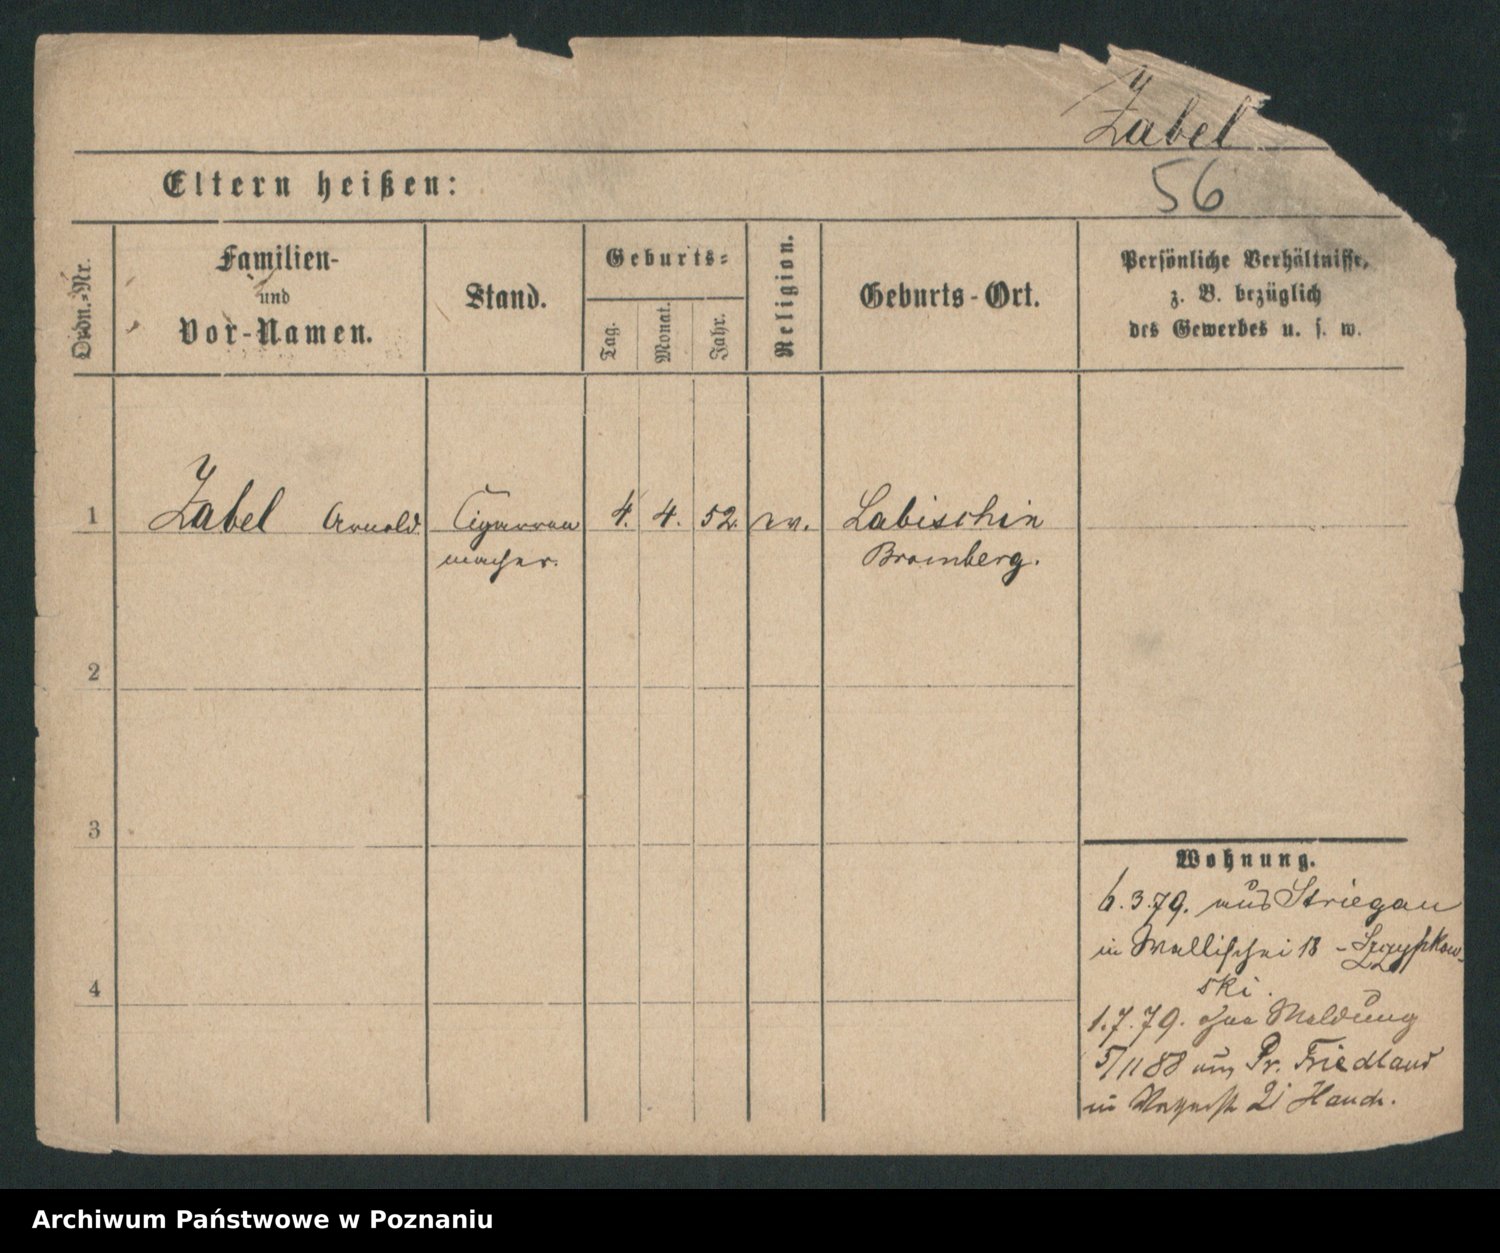 Zabel
56
Eltern heißen:
Ordn.-Nr.
Familien-
und
Vor-Namen.
Stand.
Geburts-
Tag.
Monat.
Jahr.
Religion.
Geburts-Ort.
Persönliche Verhältnisse,
z. B. bezüglich
des Gewerbes u. s. w.
1 Zabel Arnold Cigarren 4. 4. 52. ev. Labischin
macher. Bromberg.
2
3
4
Wohnung.
6.3.79. aus Striegau
in Wallischei 13 -
ski.
1.7.79. ohne Meldung
5/11 88 aus Pr. Friedland
in 2
Archiwum Państwowe w Poznaniu